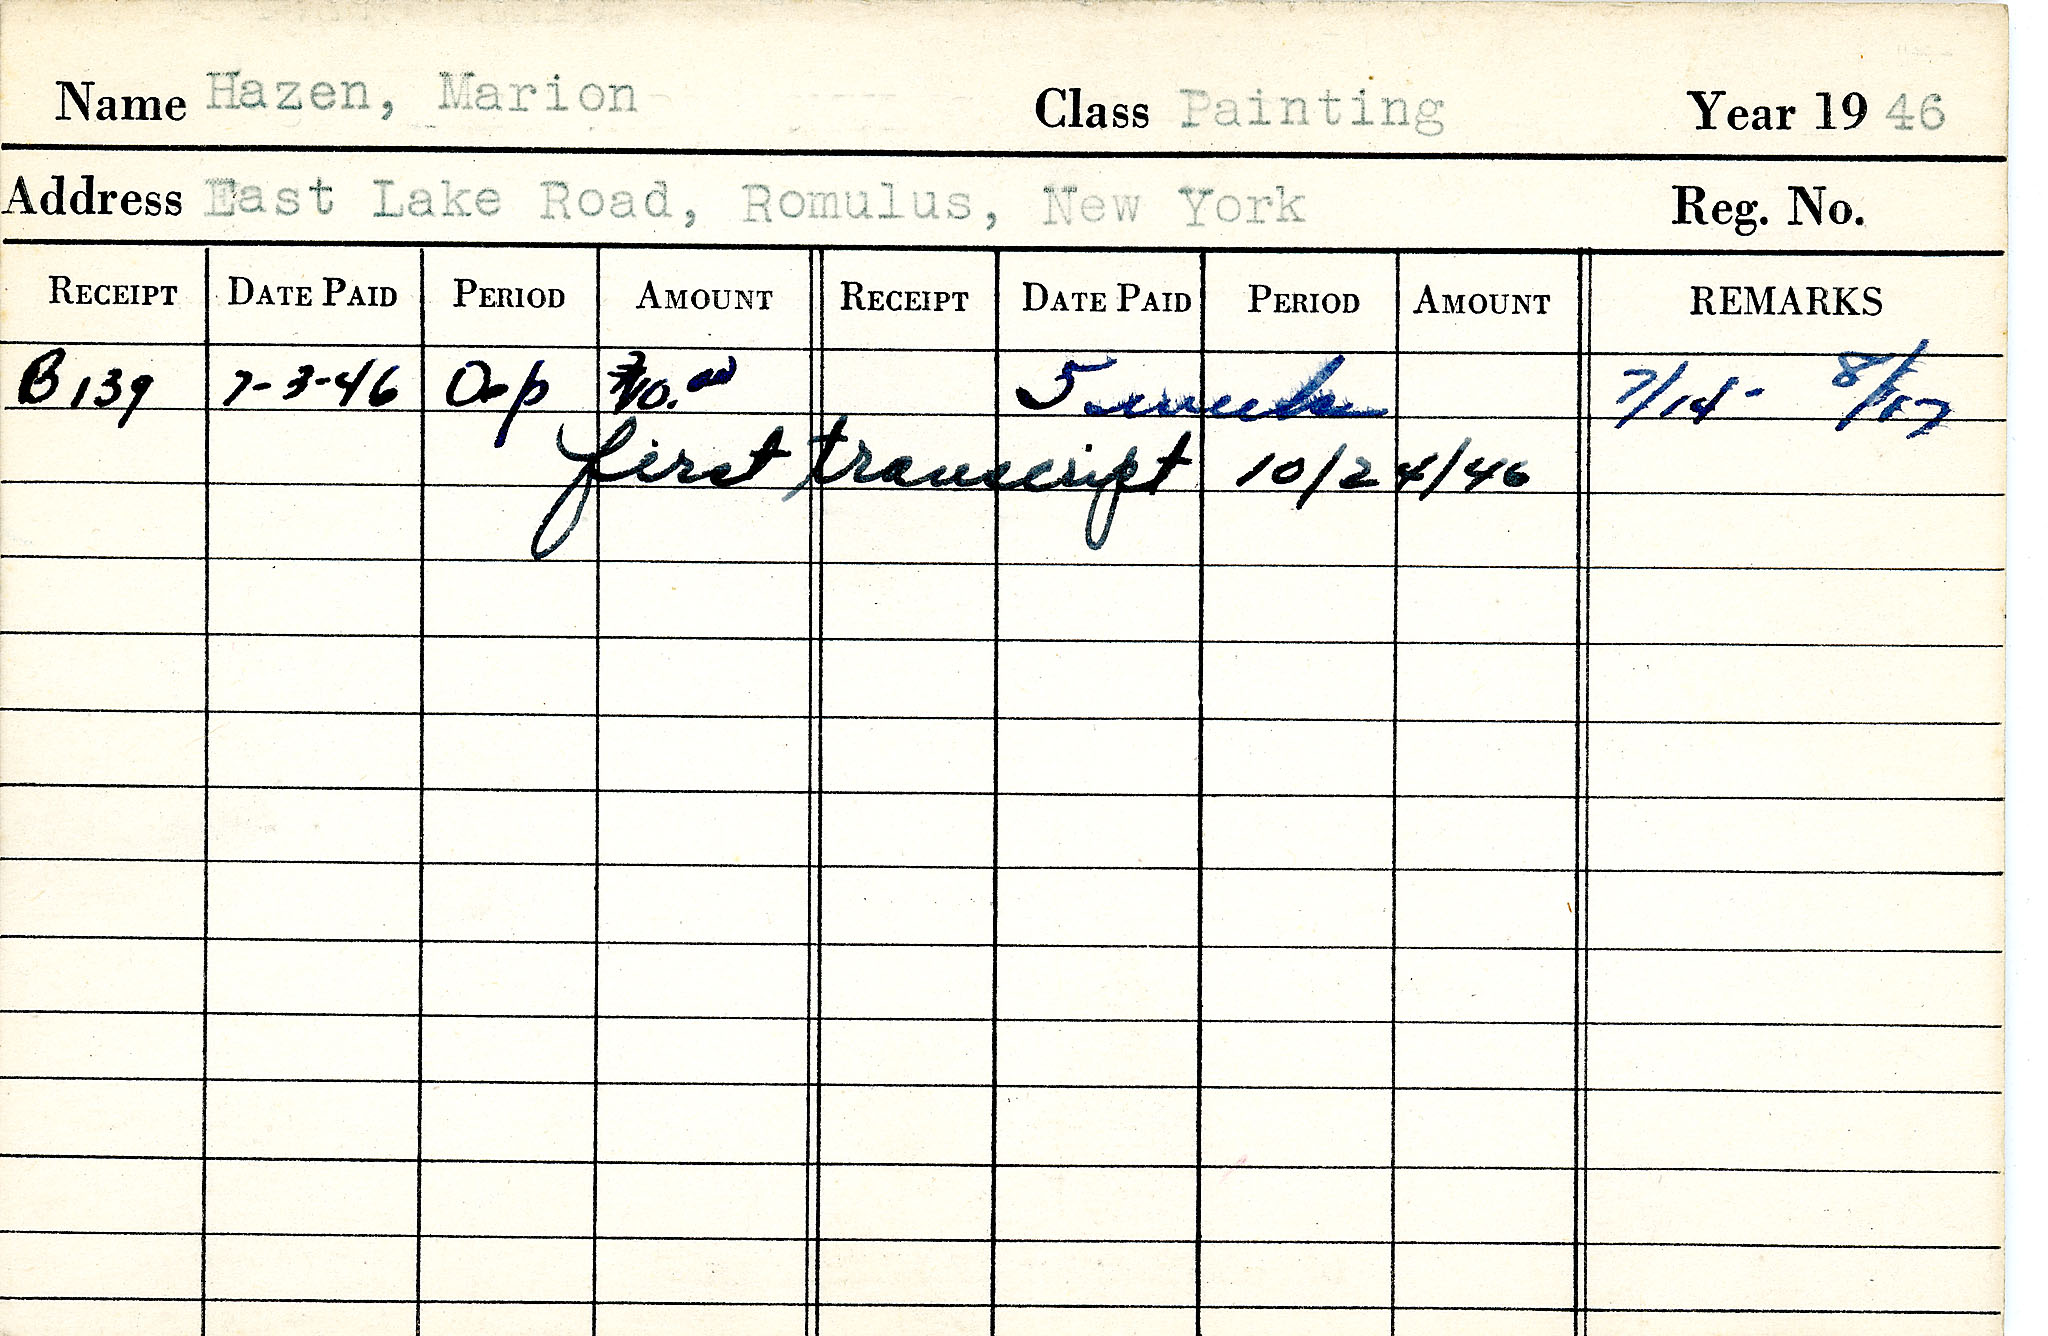 Name Hazen, Marion Class Painting Year 1946
Address East Lake Road, Romulus, New York Reg. No.
RECEIPT DATE PAID PERIOD AMOUNT RECEIPT DATE PAID PERIOD AMOUNT REMARKS
B139 7-3-46 Dep 5 weeks 7/14- 8/17
first transcript 10/24/46